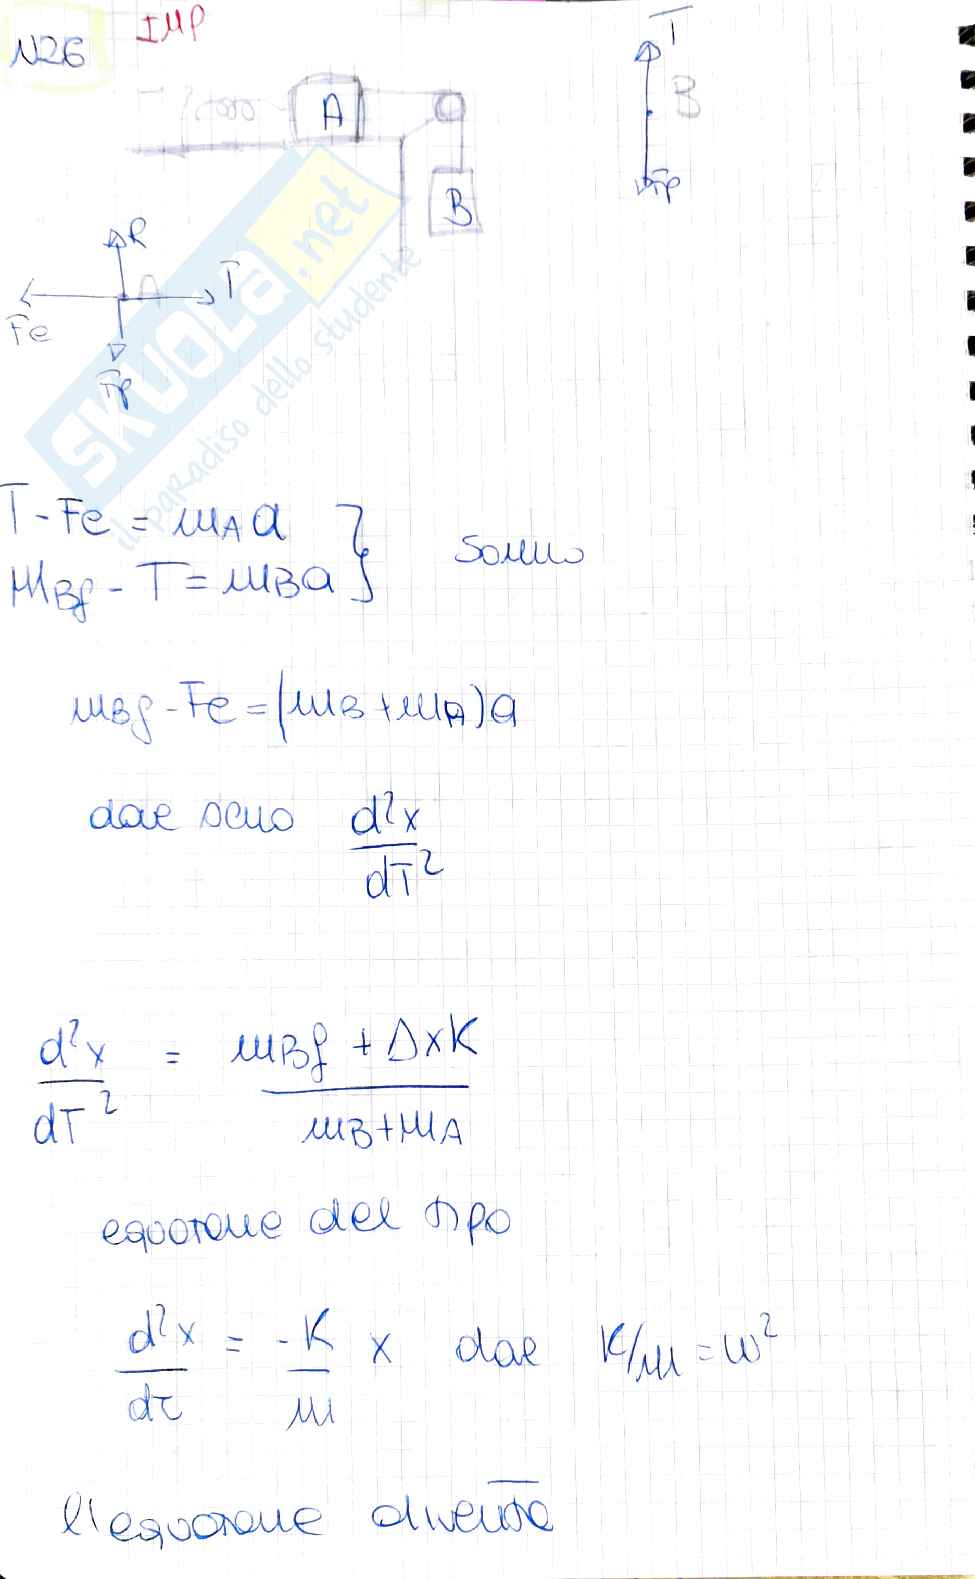 N26 IMP
T
A
B
B
Fp
R
A
T
Fe
Fp
SKUOLA.net
il paradiso dello studente
T - Fe = mA a
mBg - T = mBa } sommo
mBg - Fe = (mB + mA) a
d²x
dT²
d²x = mBg + ΔxK
dT² mB + mA
equazione del tipo
d²x = -K x dal K/m = w²
dτ m
l'equazione diventa